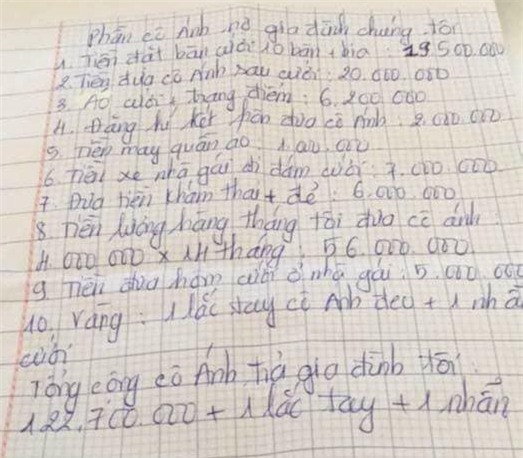 Phần cô Ánh nợ gia đình chúng tôi
1. Tiền đặt bàn cưới 10 bàn + bia : 19 500.000
2. Tiền đưa cô Ánh sau cưới : 20.000.000
3. Áo cưới + trang điểm : 6.200.000
4. Đăng kí kết hôn đưa cô Ánh : 2.000.000
5. Tiền may quần áo : 1.000.000
6. Tiền xe nhà gái đi đám cưới : 7.000.000
7. Đưa tiền khám thai + đẻ : 6.000.000
8. Tiền lương hàng tháng tôi đưa cô ánh
4.000 000 x 14 tháng : 56.000.000
9. Tiền đưa hôm cưới ở nhà gái : 5.000.000
10. Vàng : 1 lắc tay cô Ánh đeo + 1 nhẫ
cưới
Tổng cộng cô Ánh trả gia đình tôi
122.700.000 + 1 lắc tay + 1 nhẫn